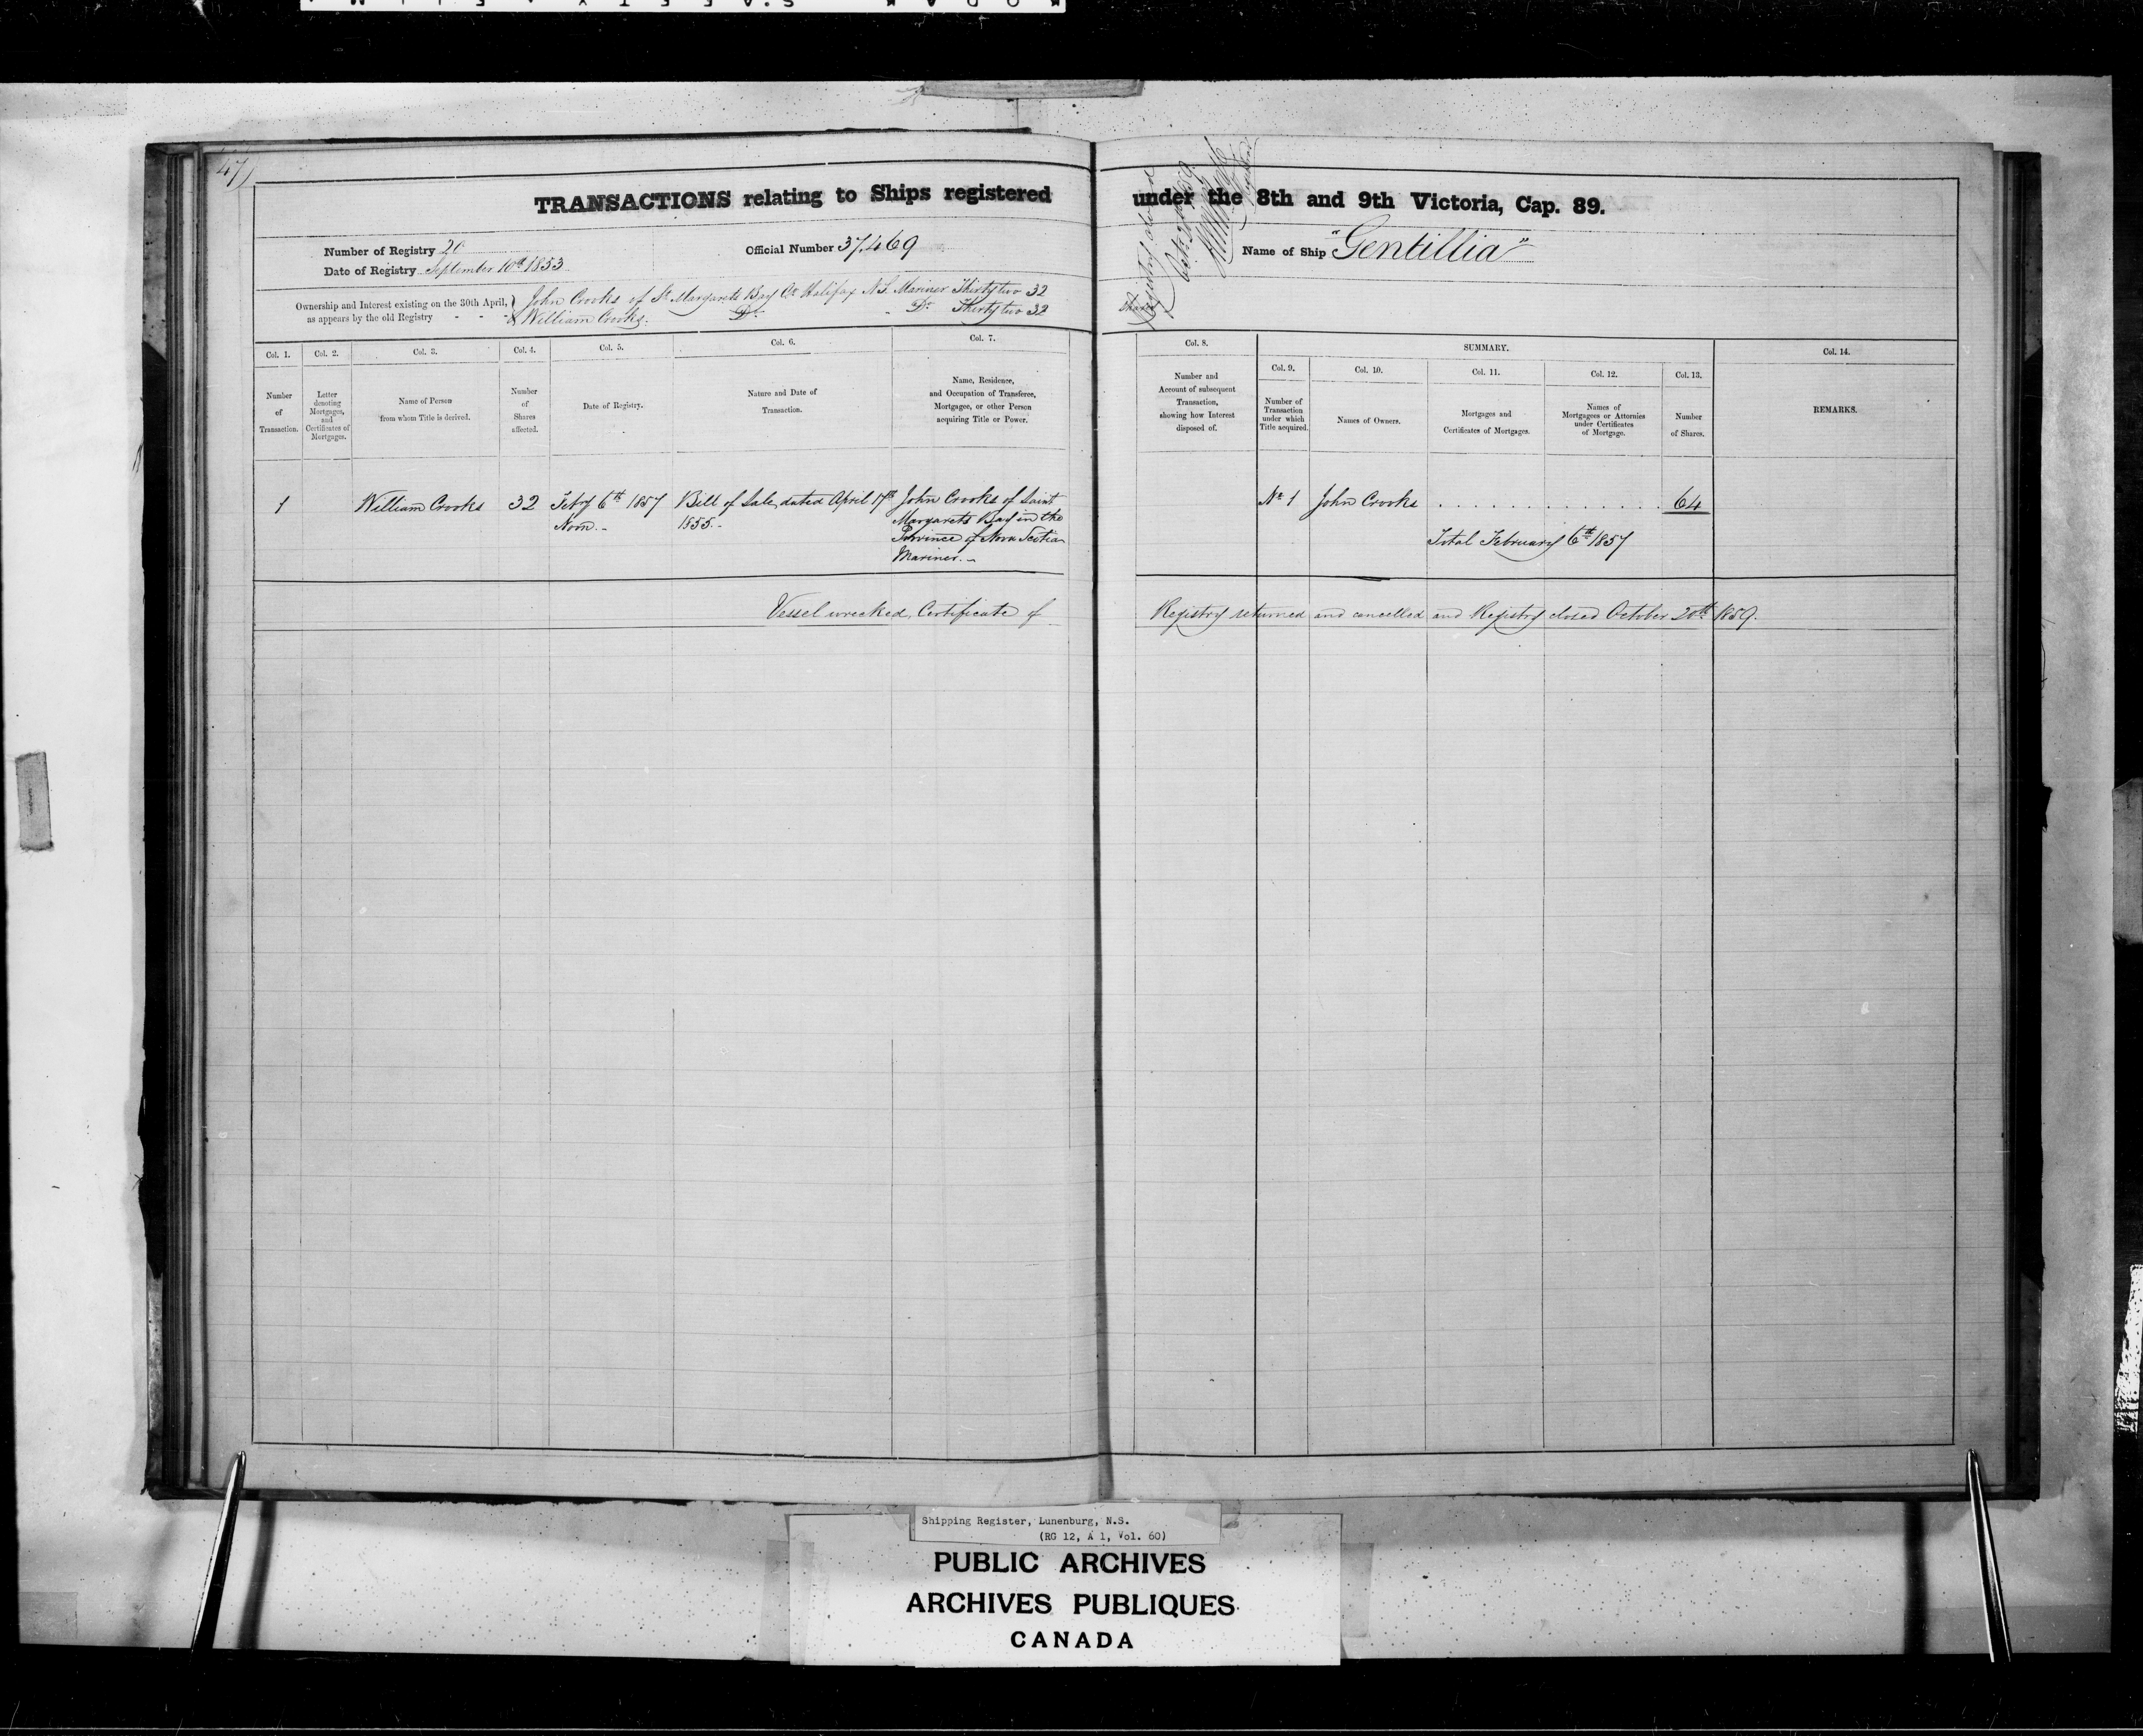 47
TRANSACTIONS relating to Ships registered under the 8th and 9th Victoria, Cap. 89.
Number of Registry 20
Official Number 37.469
Name of Ship "Gentillia"
Date of Registry September 10th 1853
Ownership and Interest existing on the 30th April, as appears by the old Registry - - -
John Crooks of St Margarets Bay Co Halifax N.S. Mariner Thirty two 32
& William Crooks. Do. Do. Thirty two 32 Shares
Registry closed
Col. 1.
Number of Transaction.
Col. 2.
Letter denoting Mortgages, and Certificates of Mortgages.
Col. 3.
Name of Person from whom Title is derived.
Col. 4.
Number of Shares affected.
Col. 5.
Date of Registry.
Col. 6.
Nature and Date of Transaction.
Col. 7.
Name, Residence, and Occupation of Transferee, Mortgagee, or other Person acquiring Title or Power.
Col. 8.
Number and Account of subsequent Transaction, showing how Interest disposed of.
SUMMARY.
Col. 9.
Number of Transaction under which Title acquired.
Col. 10.
Names of Owners.
Col. 11.
Mortgages and Certificates of Mortgages.
Col. 12.
Names of Mortgagees or Attornies under Certificates of Mortgage.
Col. 13.
Number of Shares.
Col. 14.
REMARKS.
1
William Crooks
32
Feby 6th 1857
Noon. -
Bill of Sale, dated April 17th
1855. -
John Crooks of Saint
Margarets Bay in the
Province of Nova Scotia
Mariner. -
No 1
John Crooks . . . . . . . . . . . . . . 64
Total February 6th 1857
Vessel wrecked, Certificate of Registry returned and cancelled and Registry closed October 20th 1859.
Shipping Register, Lunenburg, N.S.
(RG 12, A 1, Vol. 60)
PUBLIC ARCHIVES
ARCHIVES PUBLIQUES
CANADA